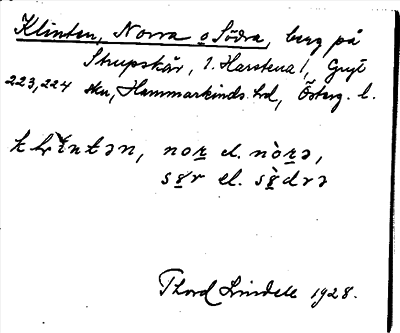 Klinten, Norra o Södra, berg på
Strupskär, 1. Harstena 1, Gryt
223,224 skn, Hammarkinds hd, Österg. l.
klintən, nor el. nòrə,
sør el. sø̀drə
Thord Lindell 1928.